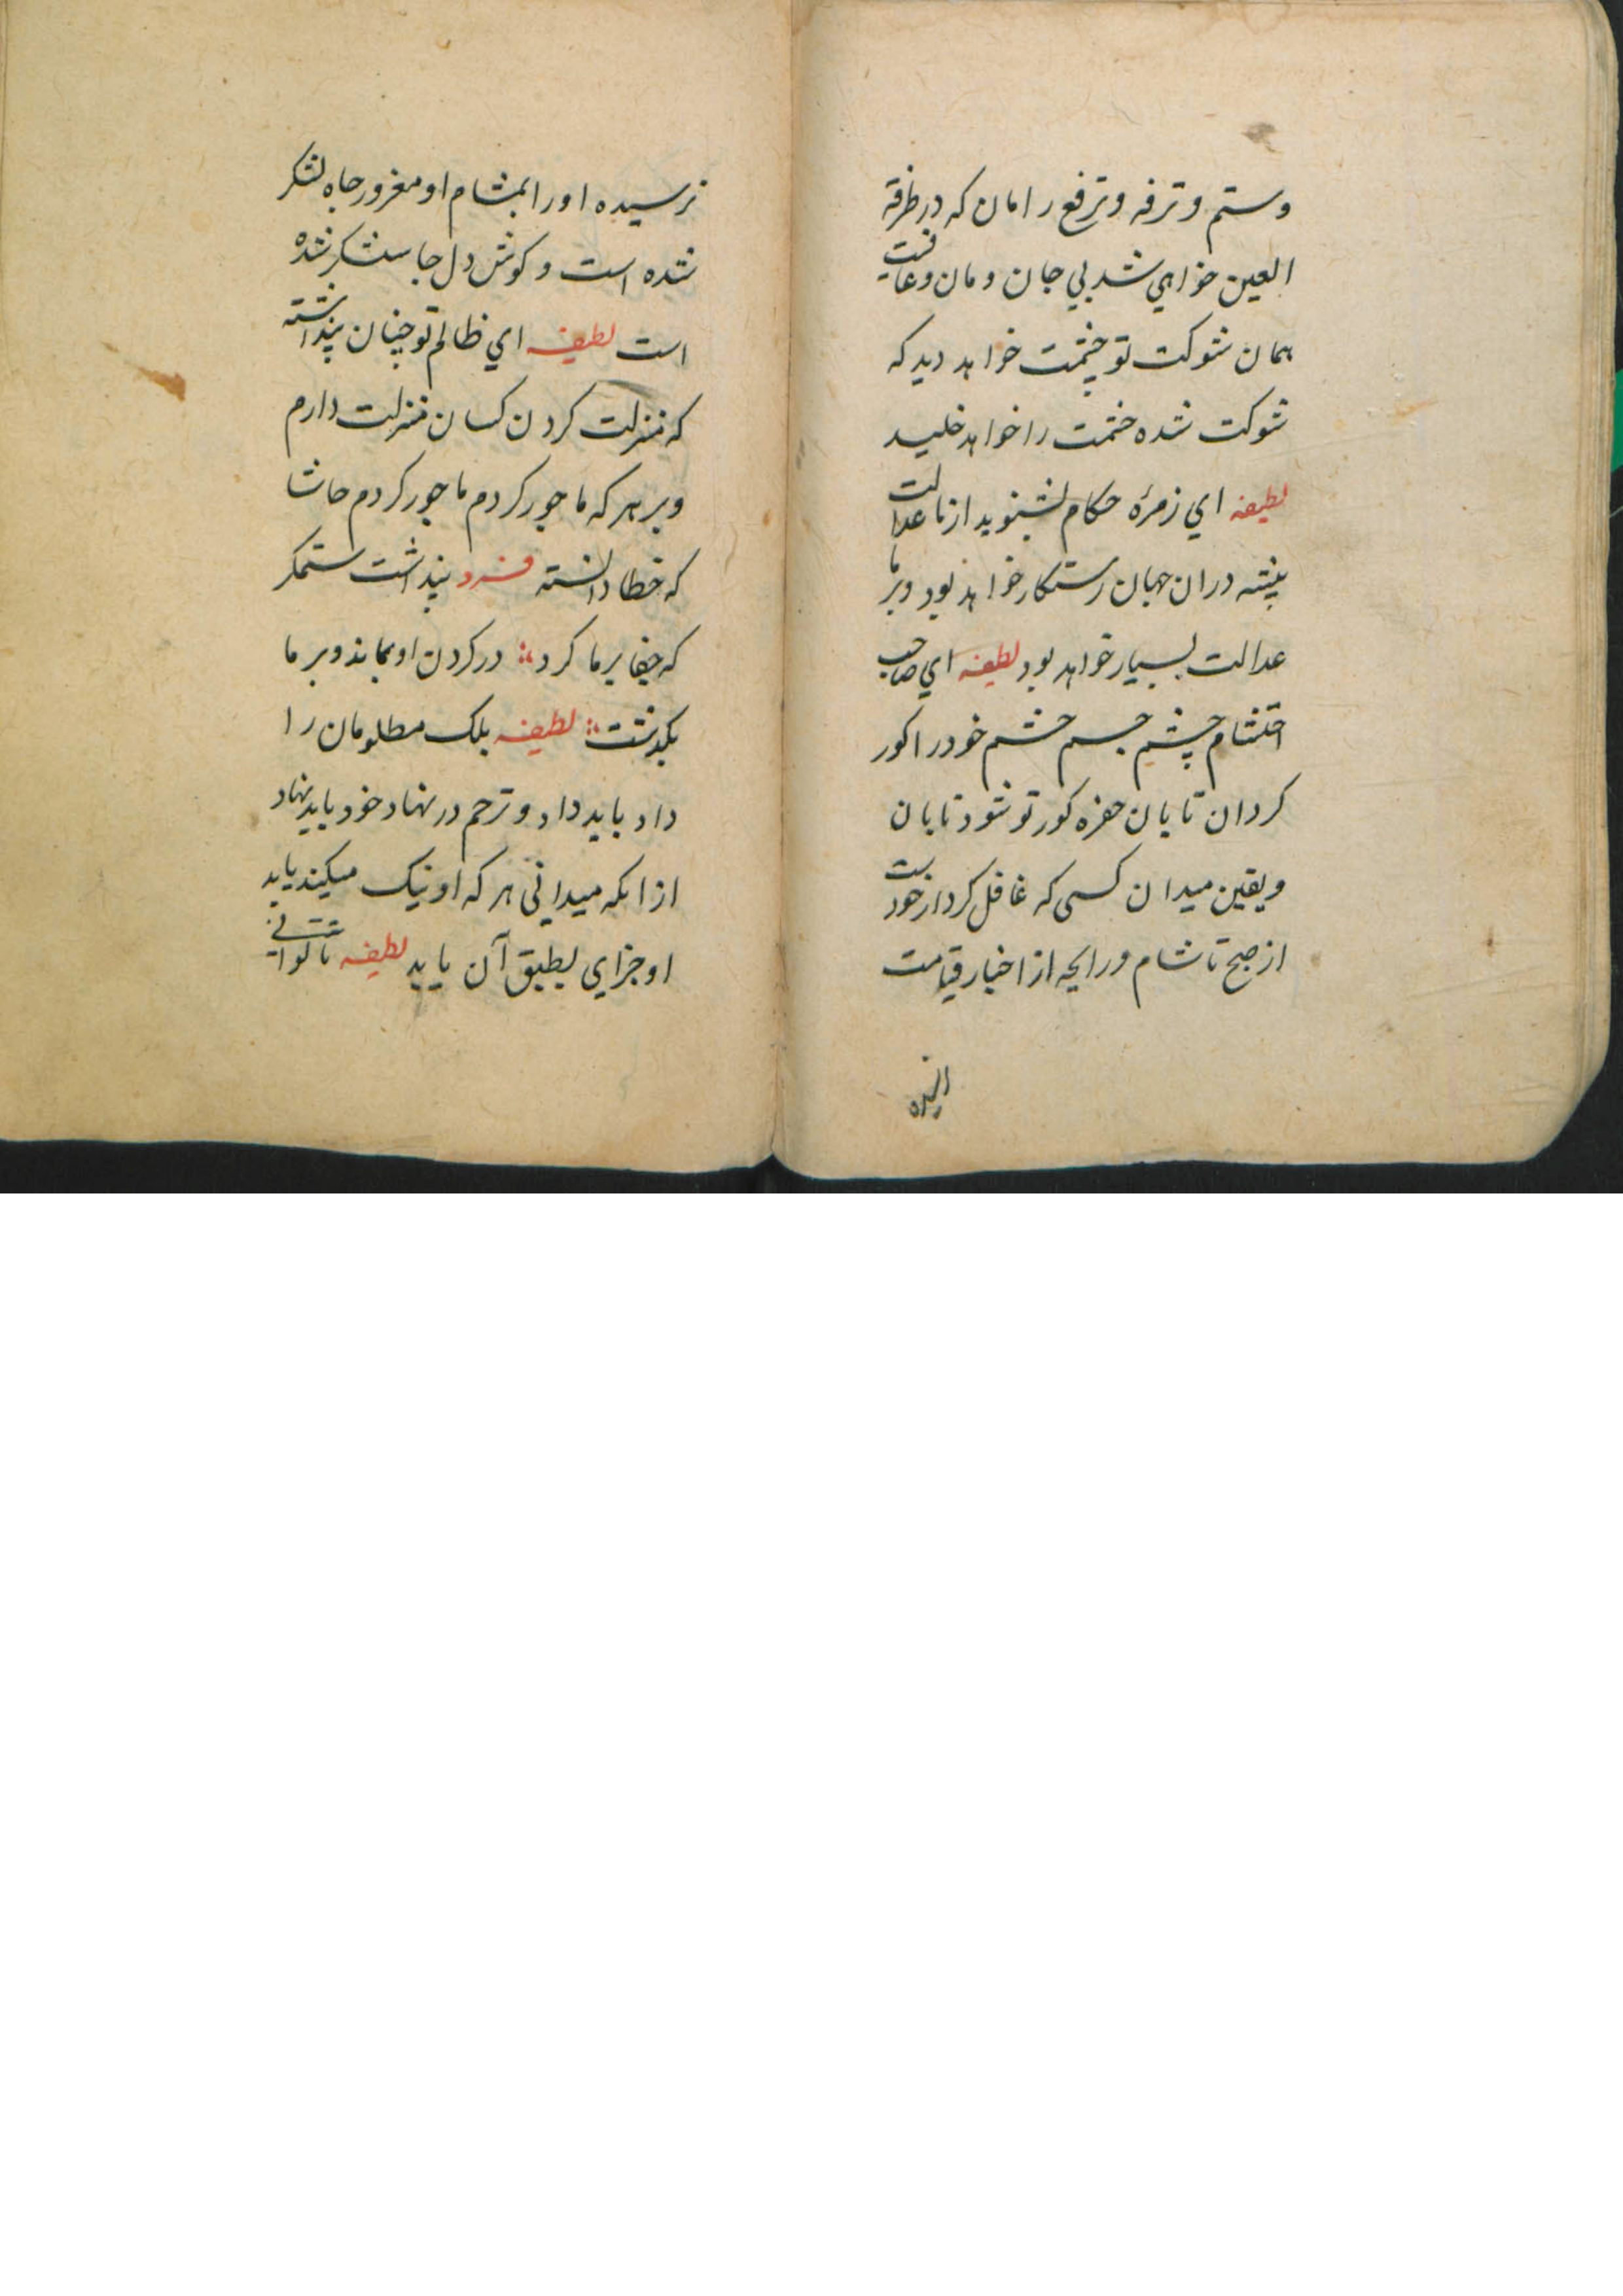 وستم وترفه وترفع را مان که در طرفة
العین خواهي شد بي جان و مان وعاقبت
همان شوکت تو چشمت خواهد دید که
شوکت شده خشمت را خواهد خلید
لطیفه اي زمرهٔ حکام بشنوید از ما عدالت
پیشه دران جهان رستکار خواهد بود وبر ما
عدالت بسیار خواهد بود لطیفه اي صاحب
احتشام چشم جسم خشم خود را کور
کردان تا یان حفره کور تو شود تابان
ویقین میدان کسی که غافل کرد از خودت
از صبح تا شام ورایحه از اخبار قیامت
نرسیده اورا بمشام او مغرور جاه لشکر
شده است و کوش دل جا سنکر نشده
است لطیفه اي ظالم تو چنان پنداشته
که منزلت کردن کسان منزلت دارم
وبر هر که ما جور کردم ما جور کردم حاشا
که خطا دانسته فرد پنداشت ستمکر
که جفا بر ما کرد در کردن او بماند وبر ما
بکذشت لطیفه بلک مظلومان را
داد باید داد و ترحم در نهاد خود باید نهاد
ازانکه میدانی هر که او نیک میکند یابد
او جزاي بطبق آن یابد لطیفه تا توانی